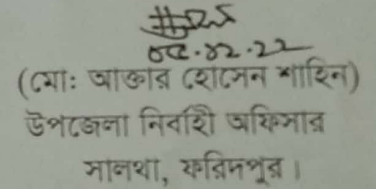 ০৫.১২.২২
(মোঃ আক্তার হোসেন শাহিন)
উপজেলা নির্বাহী অফিসার
সালথা, ফরিদপুর।